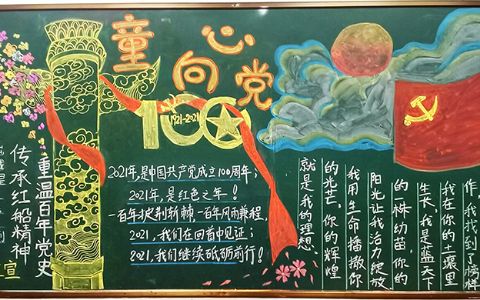 童心向党
100
1921-2021
重温百年党史
传承红船精神
宣
2021年,是中国共产党成立100周年;
2021年,是红色之年!
一百年披荆斩棘,一百年风雨兼程,
2021,我们在回首中见证;
2021,我们继续砥砺前行!
作,我找到了榜样
我在你的土壤里
生长,我是蓝天下
的一株幼苗,你的
阳光让我活力绽放
我用生命播撒你
的光芒,你的辉煌
就是我的理想.